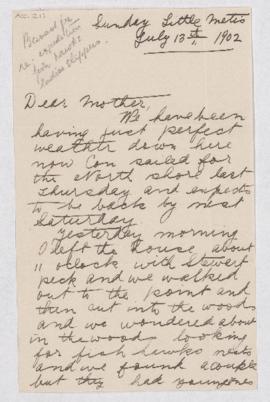 ACC. 211
Sunday Little Metis
July 13th, 1902
Dear Mother,
We have been
having just perfect
weather down here
now Con sailed for
the North shore last
Thursday and expects
to be back by next
Saturday.
Yesterday morning
I left the house about
11 oclock with Stewert
peck and we walked
out to the point and
then cut into the woods
and we wondered about
in the woods looking
for fish hawks nests
and we found a couple
but they had young ones